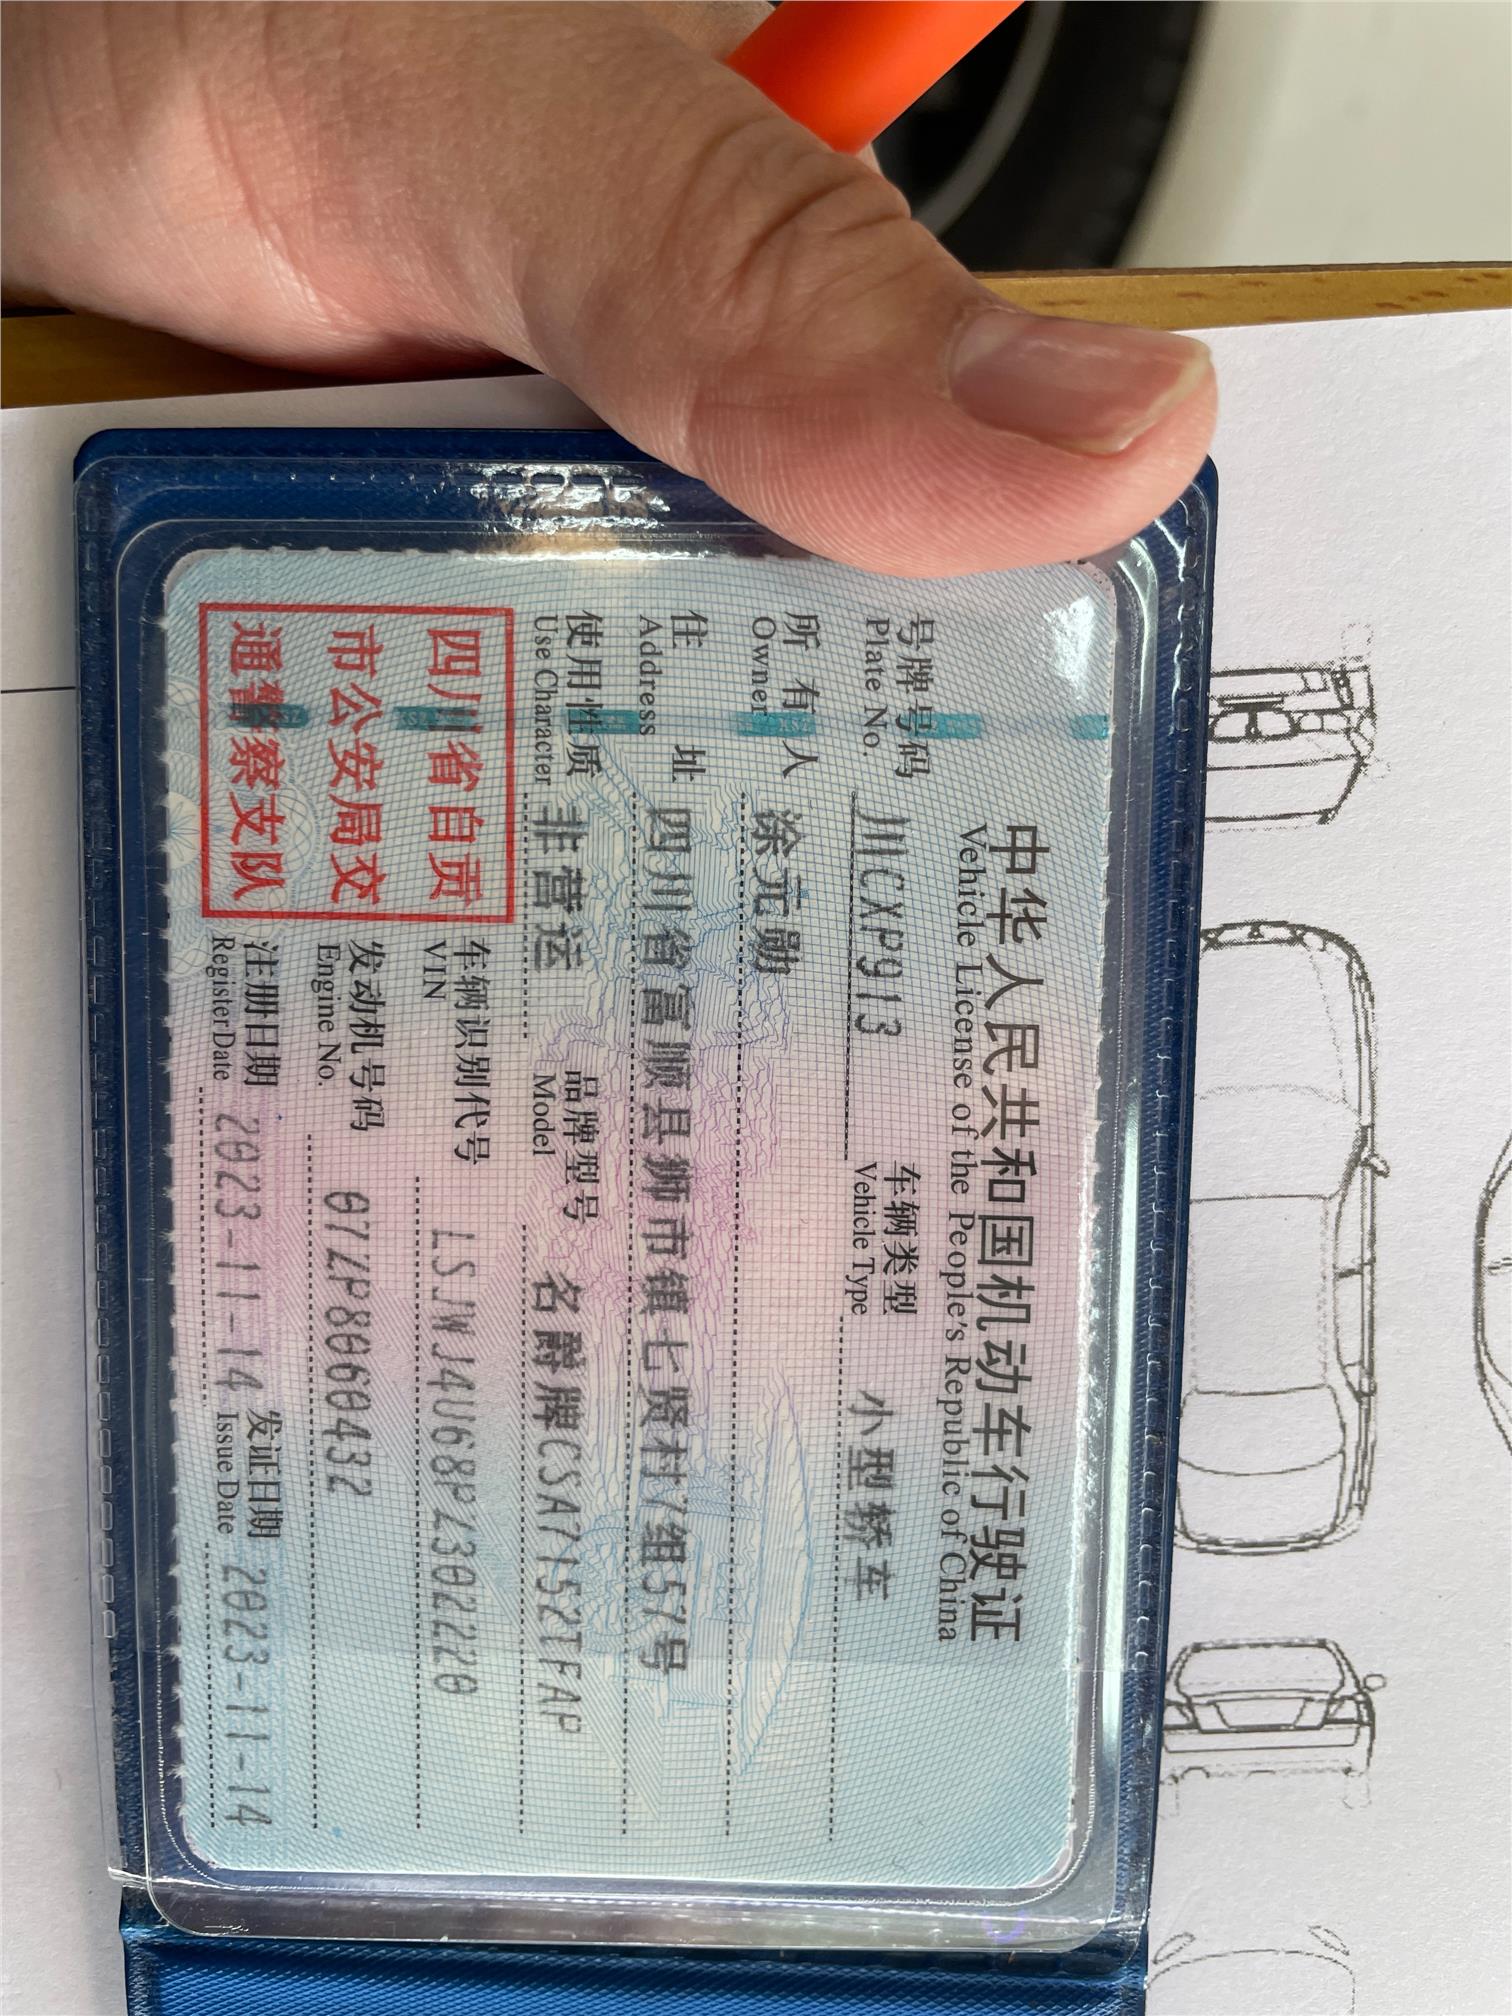 中华人民共和国机动车行驶证
Vehicle License of the People's Republic of China
号牌号码 川CXP913 车辆类型 小型轿车
Plate No. Vehicle Type
所有人 涂元勋
Owner
住址 四川省富顺县狮市镇七贤村7组57号
Address
使用性质 非营运 品牌型号 名爵牌CSA7152TFAP
Use Character Model
四川省自贡
市公安局交
通警察支队
车辆识别代号 LSJWJ4U68PZ302220
VIN
发动机号码 07ZP8060432
Engine No.
注册日期 2023-11-14 发证日期 2023-11-14
Register Date Issue Date